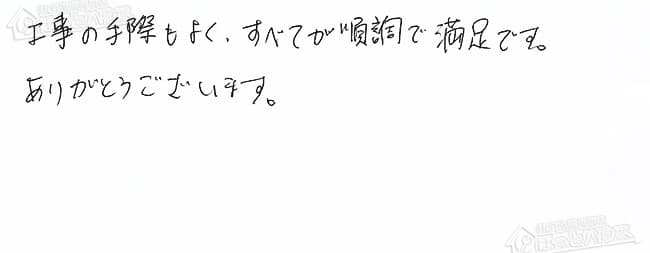 工事の手際もよく、すべてが順調で満足です。
ありがとうございます。
ほっとハウス